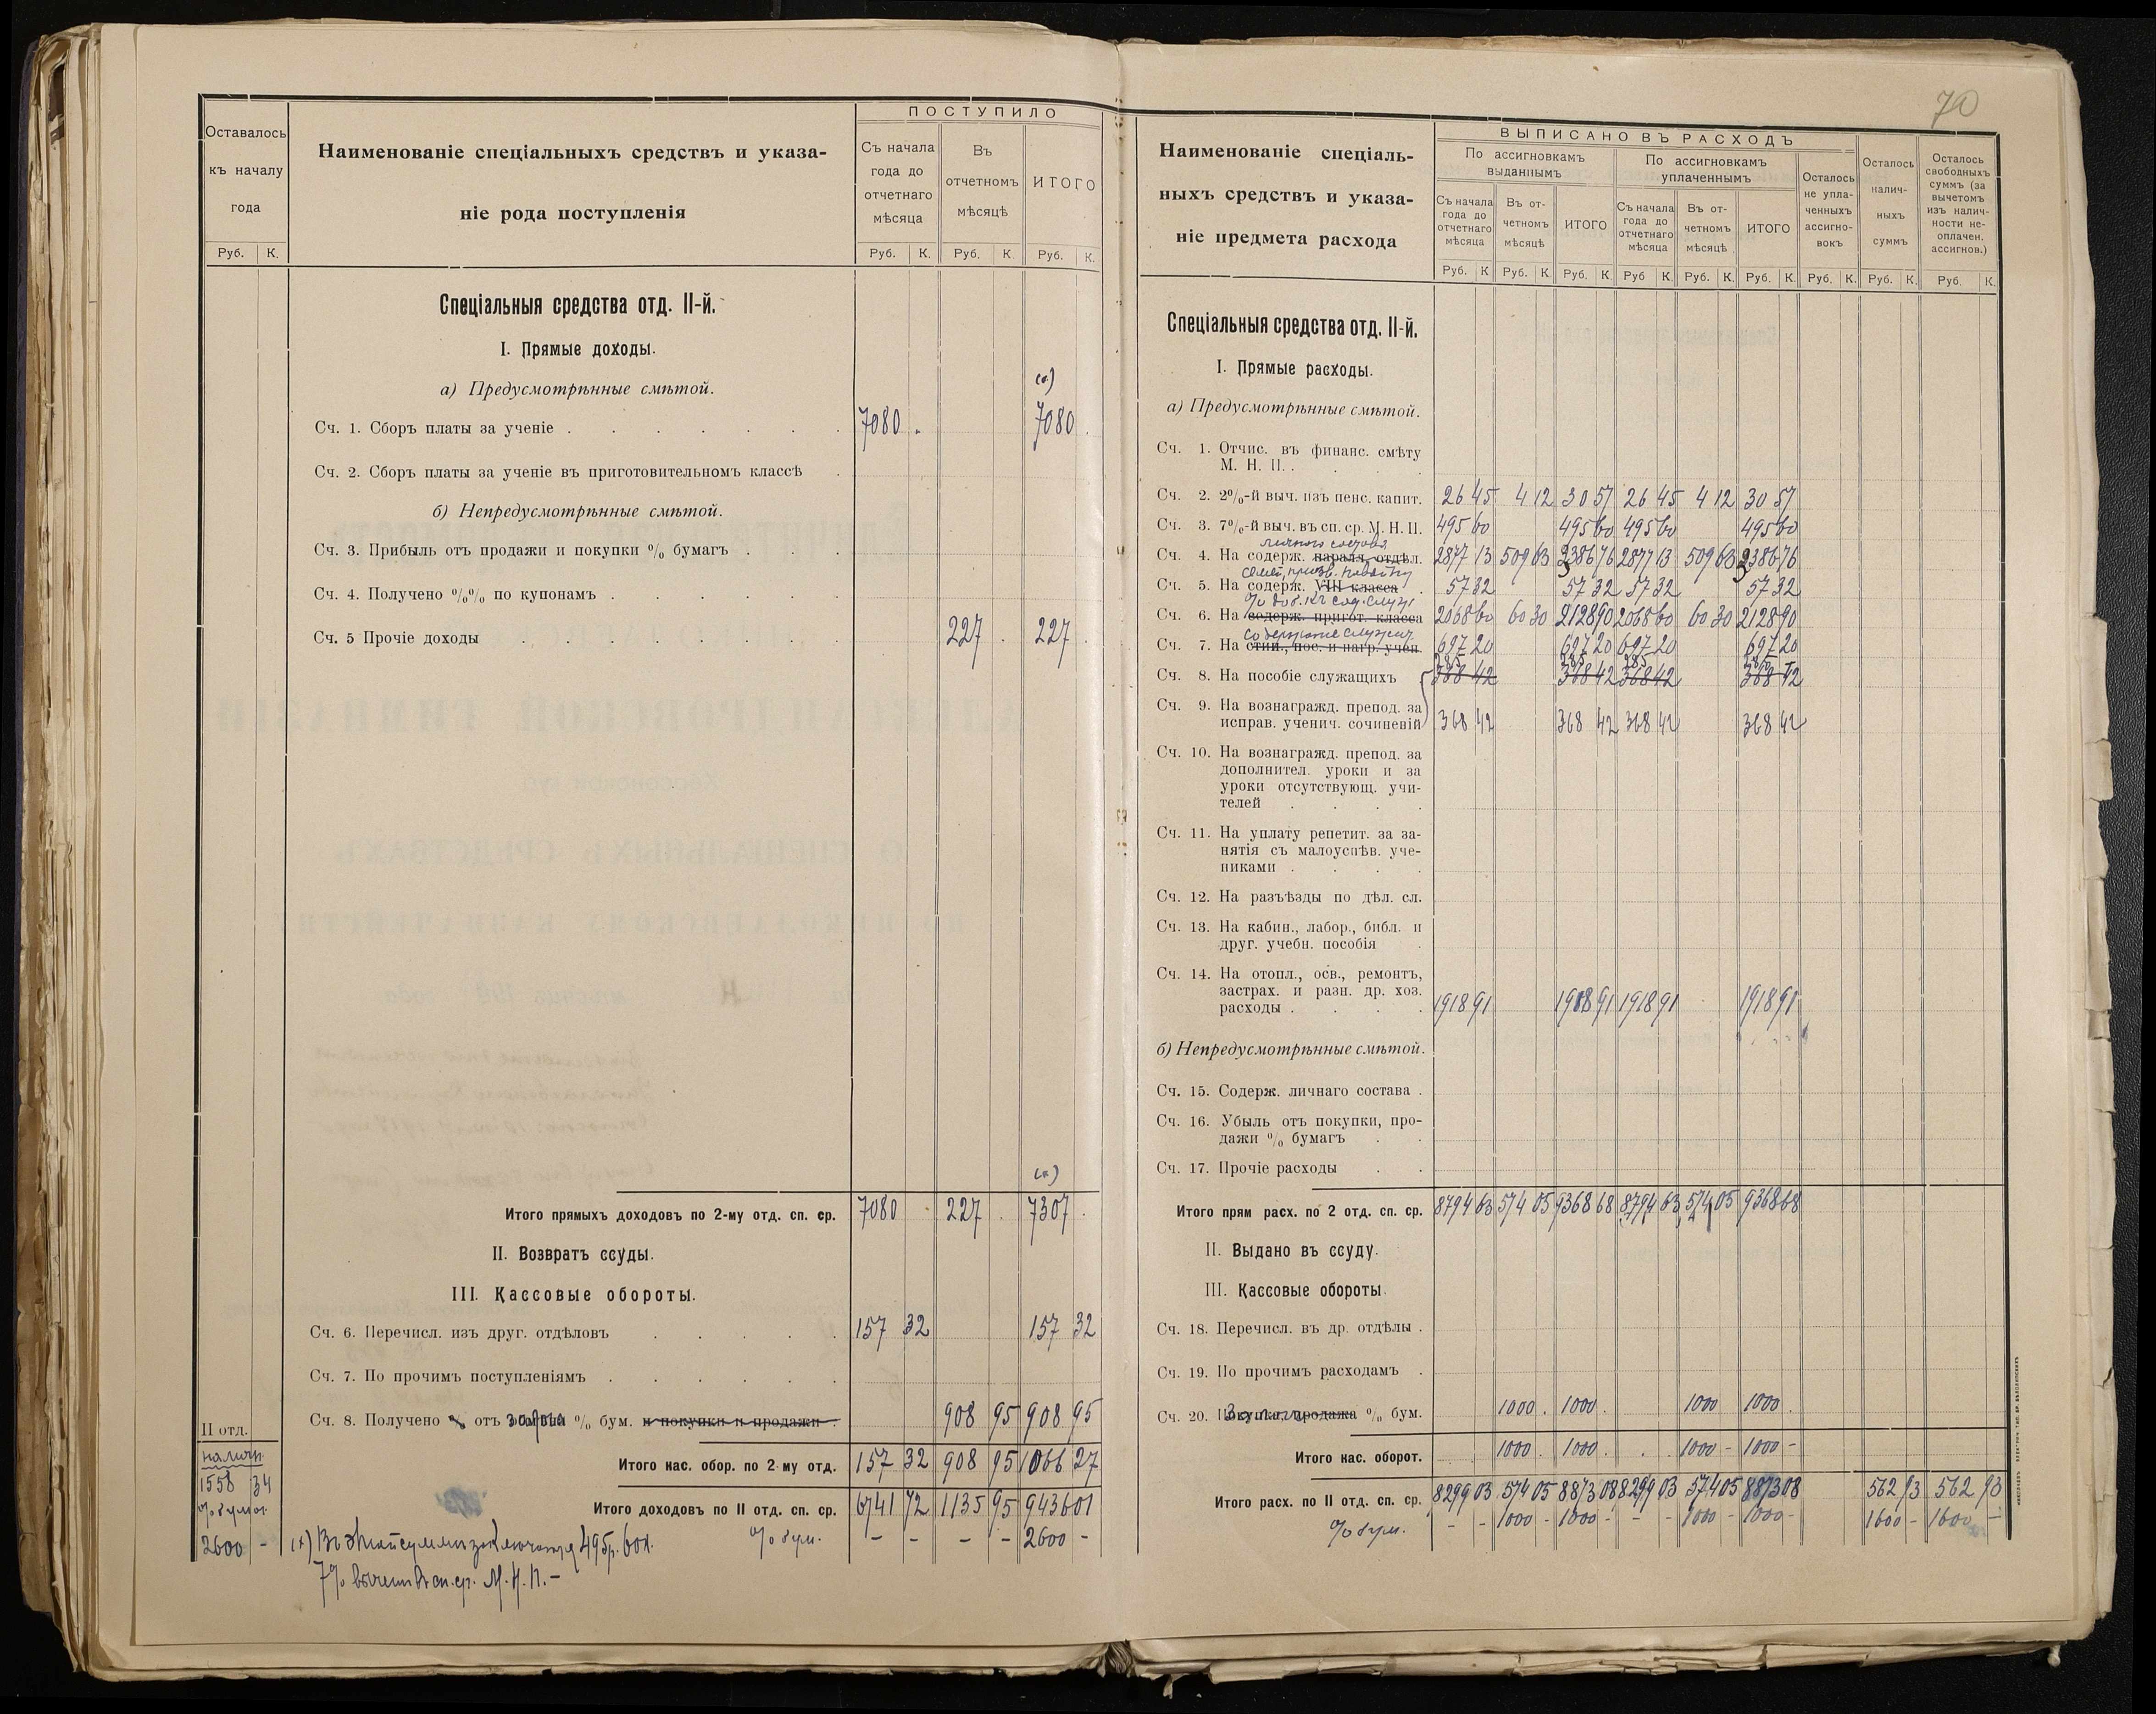 70
ПОСТУПИЛО
Оставалось
къ началу
года
Наименованіе спеціальныхъ средствъ и указа-
ніе рода поступленія
Съ начала
года до
отчетнаго
мѣсяца
Въ
отчетномъ
мѣсяцѣ
ИТОГО
Руб. К. Руб. К. Руб. К. Руб. К.
Спеціальныя средства отд. II-й.
I. Прямые доходы.
а) Предусмотрѣнные смѣтой.
Сч. 1. Сборъ платы за ученіе . 7080 . 7080 .
Сч. 2. Сборъ платы за ученіе въ приготовительномъ классѣ
б) Непредусмотрѣнные смѣтой.
Сч. 3. Прибыль отъ продажи и покупки % бумагъ
Сч. 4. Получено %% по купонамъ
Сч. 5 Прочіе доходы 227 . 227 .
Итого прямыхъ доходовъ по 2-му отд. сп. ср. 7080 . 227 . 7307 .
II. Возвратъ ссуды.
III. Кассовые обороты.
Сч. 6. Перечисл. изъ друг. отдѣловъ 157 32 157 32
Сч. 7. По прочимъ поступленіямъ
Сч. 8. Получено % отъ % бум. и покупки и продажи 908 95 908 95
Итого кас. обор. по 2-му отд. 157 32 908 95 1066 27
Итого доходовъ по II отд. сп. ср. 6741 72 1135 95 9436 01
% бум. – – – – 2600 –
II отд.
наличн.
1558 34
% бумаг.
2600 –
495р. 60к.
7% М. Н. П. –
ВЫПИСАНО ВЪ РАСХОДЪ
Наименованіе спеціаль-
ныхъ средствъ и указа-
ніе предмета расхода
По ассигновкамъ
выданнымъ
По ассигновкамъ
уплаченнымъ
Съ начала
года до
отчетнаго
мѣсяца
Въ от-
четномъ
мѣсяцѣ
ИТОГО
Съ начала
года до
отчетнаго
мѣсяца
Въ от-
четномъ
мѣсяцѣ
ИТОГО
Осталось
не упла-
ченныхъ
ассигно-
вокъ
Осталось
налич-
ныхъ
суммъ
Осталось
свободныхъ
суммъ (за
вычетомъ
изъ налич-
ности не-
оплачен.
ассигнов.)
Руб. К Руб. К. Руб. К. Руб К. Руб. К. Руб. К. Руб. К. Руб. К. Руб. К.
Спеціальныя средства отд. II-й.
I. Прямые расходы.
а) Предусмотрѣнные смѣтой.
Сч. 1. Отчис. въ финанс. смѣту
М. Н. П.
Сч. 2. 2%-й выч. изъ пенс. капит. 26 45 4 12 30 57 26 45 4 12 30 57
Сч. 3. 7%-й выч. въ сп. ср. М. Н. П. 495 60 495 60 495 60 495 60
личного состава
Сч. 4. На содерж. паралл. отдѣл. 2877 13 509 63 3386 76 2877 13 509 63 3386 76
Сч. 5. На содерж. VIII класса 57 32 57 32 57 32 57 32
Сч. 6. На содерж. пригот. класса 2068 60 60 30 2128 90 2068 60 60 30 2128 90
содержание служит.
Сч. 7. На стип., пос. и нагр. учен. 697 20 697 20 697 20 697 20
Сч. 8. На пособіе служащихъ 368 42 368 42 368 42 368 42
Сч. 9. На вознагражд. препод. за
исправ. ученич. сочиненій 368 42 368 42 368 42 368 42
Сч. 10. На вознагражд. препод. за
дополнител. уроки и за
уроки отсутствующ. учи-
телей
Сч. 11. На уплату репетит. за за-
нятія съ малоуспѣв. уче-
никами
Сч. 12. На разъѣзды по дѣл. сл.
Сч. 13. На кабин., лабор., библ. и
друг. учебн. пособія
Сч. 14. На отопл., осв., ремонтъ,
застрах. и разн. др. хоз.
расходы 1918 91 1918 91 1918 91 1918 91
б) Непредусмотрѣнные смѣтой.
Сч. 15. Содерж. личнаго состава
Сч. 16. Убыль отъ покупки, про-
дажи % бумагъ
Сч. 17. Прочіе расходы
Итого прям расх. по 2 отд. сп. ср. 8794 63 574 05 9368 68 8794 63 574 05 9368 68
II. Выдано въ ссуду.
III. Кассовые обороты.
Сч. 18. Перечисл. въ др. отдѣлы
Сч. 19. По прочимъ расходамъ
Сч. 20. Покупка, продажа % бум. 1000 . 1000 . 1000 1000 .
Итого кас. оборот. 1000 . 1000 . 1000 – 1000 –
Итого расх. по II отд. сп. ср. 8299 03 574 05 8873 08 8299 03 574 05 8873 08 562 93 562 93
% бум. – – 1000 – 1000 – – – 1000 – 1000 – 1600 – 1600 –